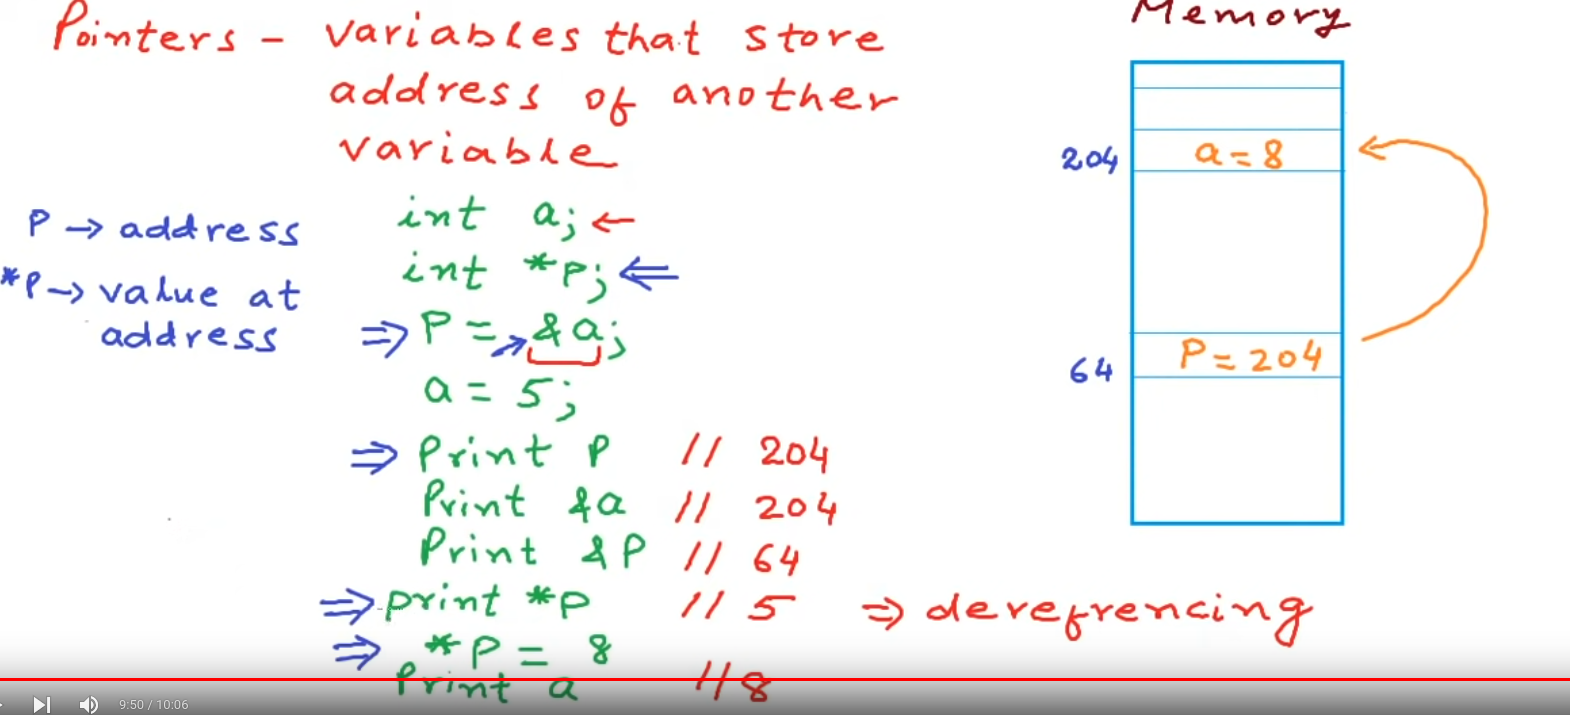 Pointers - variables that store
address of another
variable
Memory
P → address
*P → value at
address
int a; ←
int *P; ⇐
⇒ P = → &a;
a = 5;
⇒ Print P // 204
Print &a // 204
Print &P // 64
⇒ print *P // 5 ⇒ derefrencing
⇒ *P = 8
Print a // 8
204
a = 8
64
P = 204
9:50 / 10:06